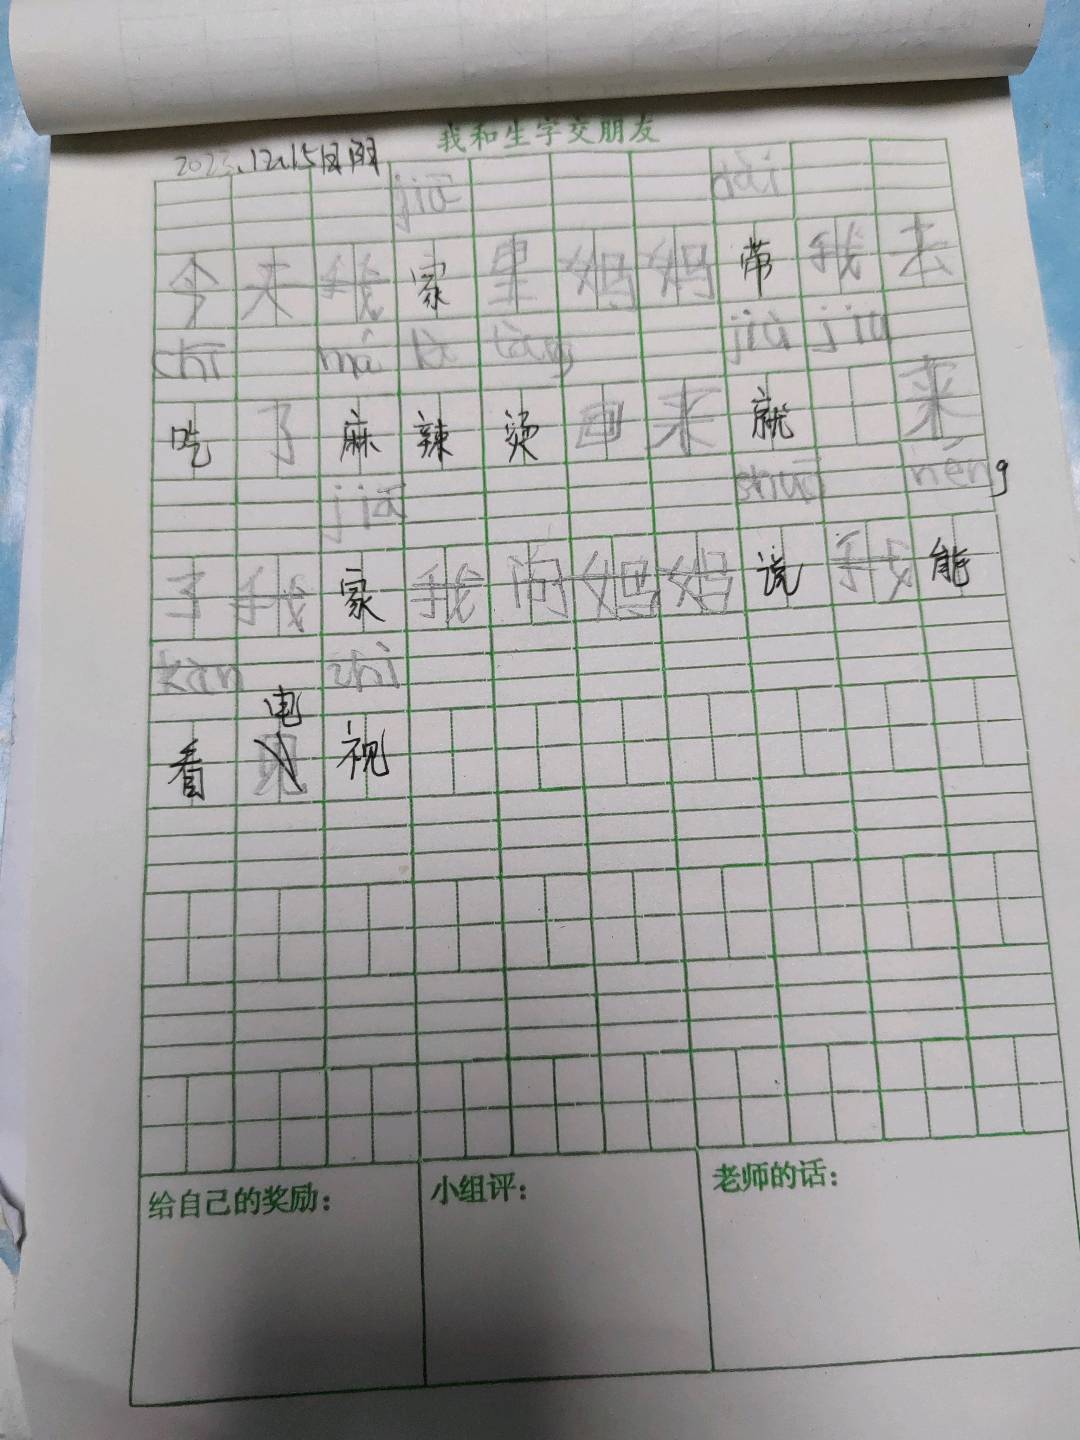 我和生字交朋友
2023.12.15日阴
jiā dài
今天我家里妈妈带我去
chī má là tàng jiù jiù
吃了麻辣烫回来就来
jiā shuō néng
了我家我问妈妈说我能
kàn shì
电
看见视
给自己的奖励：
小组评：
老师的话：